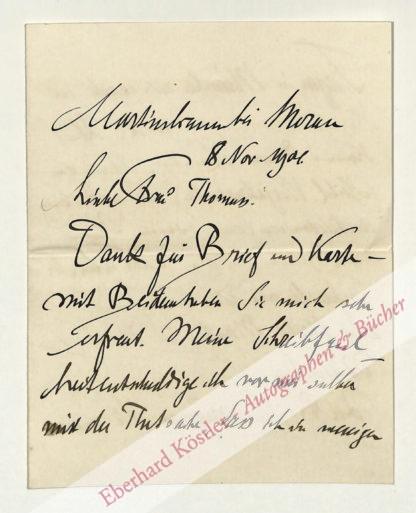 Martinsbrunn bei Meran
8 Nov 1901.
Liebe Frau Thomas.
Dank für Brief und Karte –
mit Beiden haben Sie mich sehr
erfreut. Meine Schreibfaul-
heit entschuldige ich vor mir selber
mit der Thatsache, dass ich in wenigen
Eberhard Köstler Autographen & Bücher